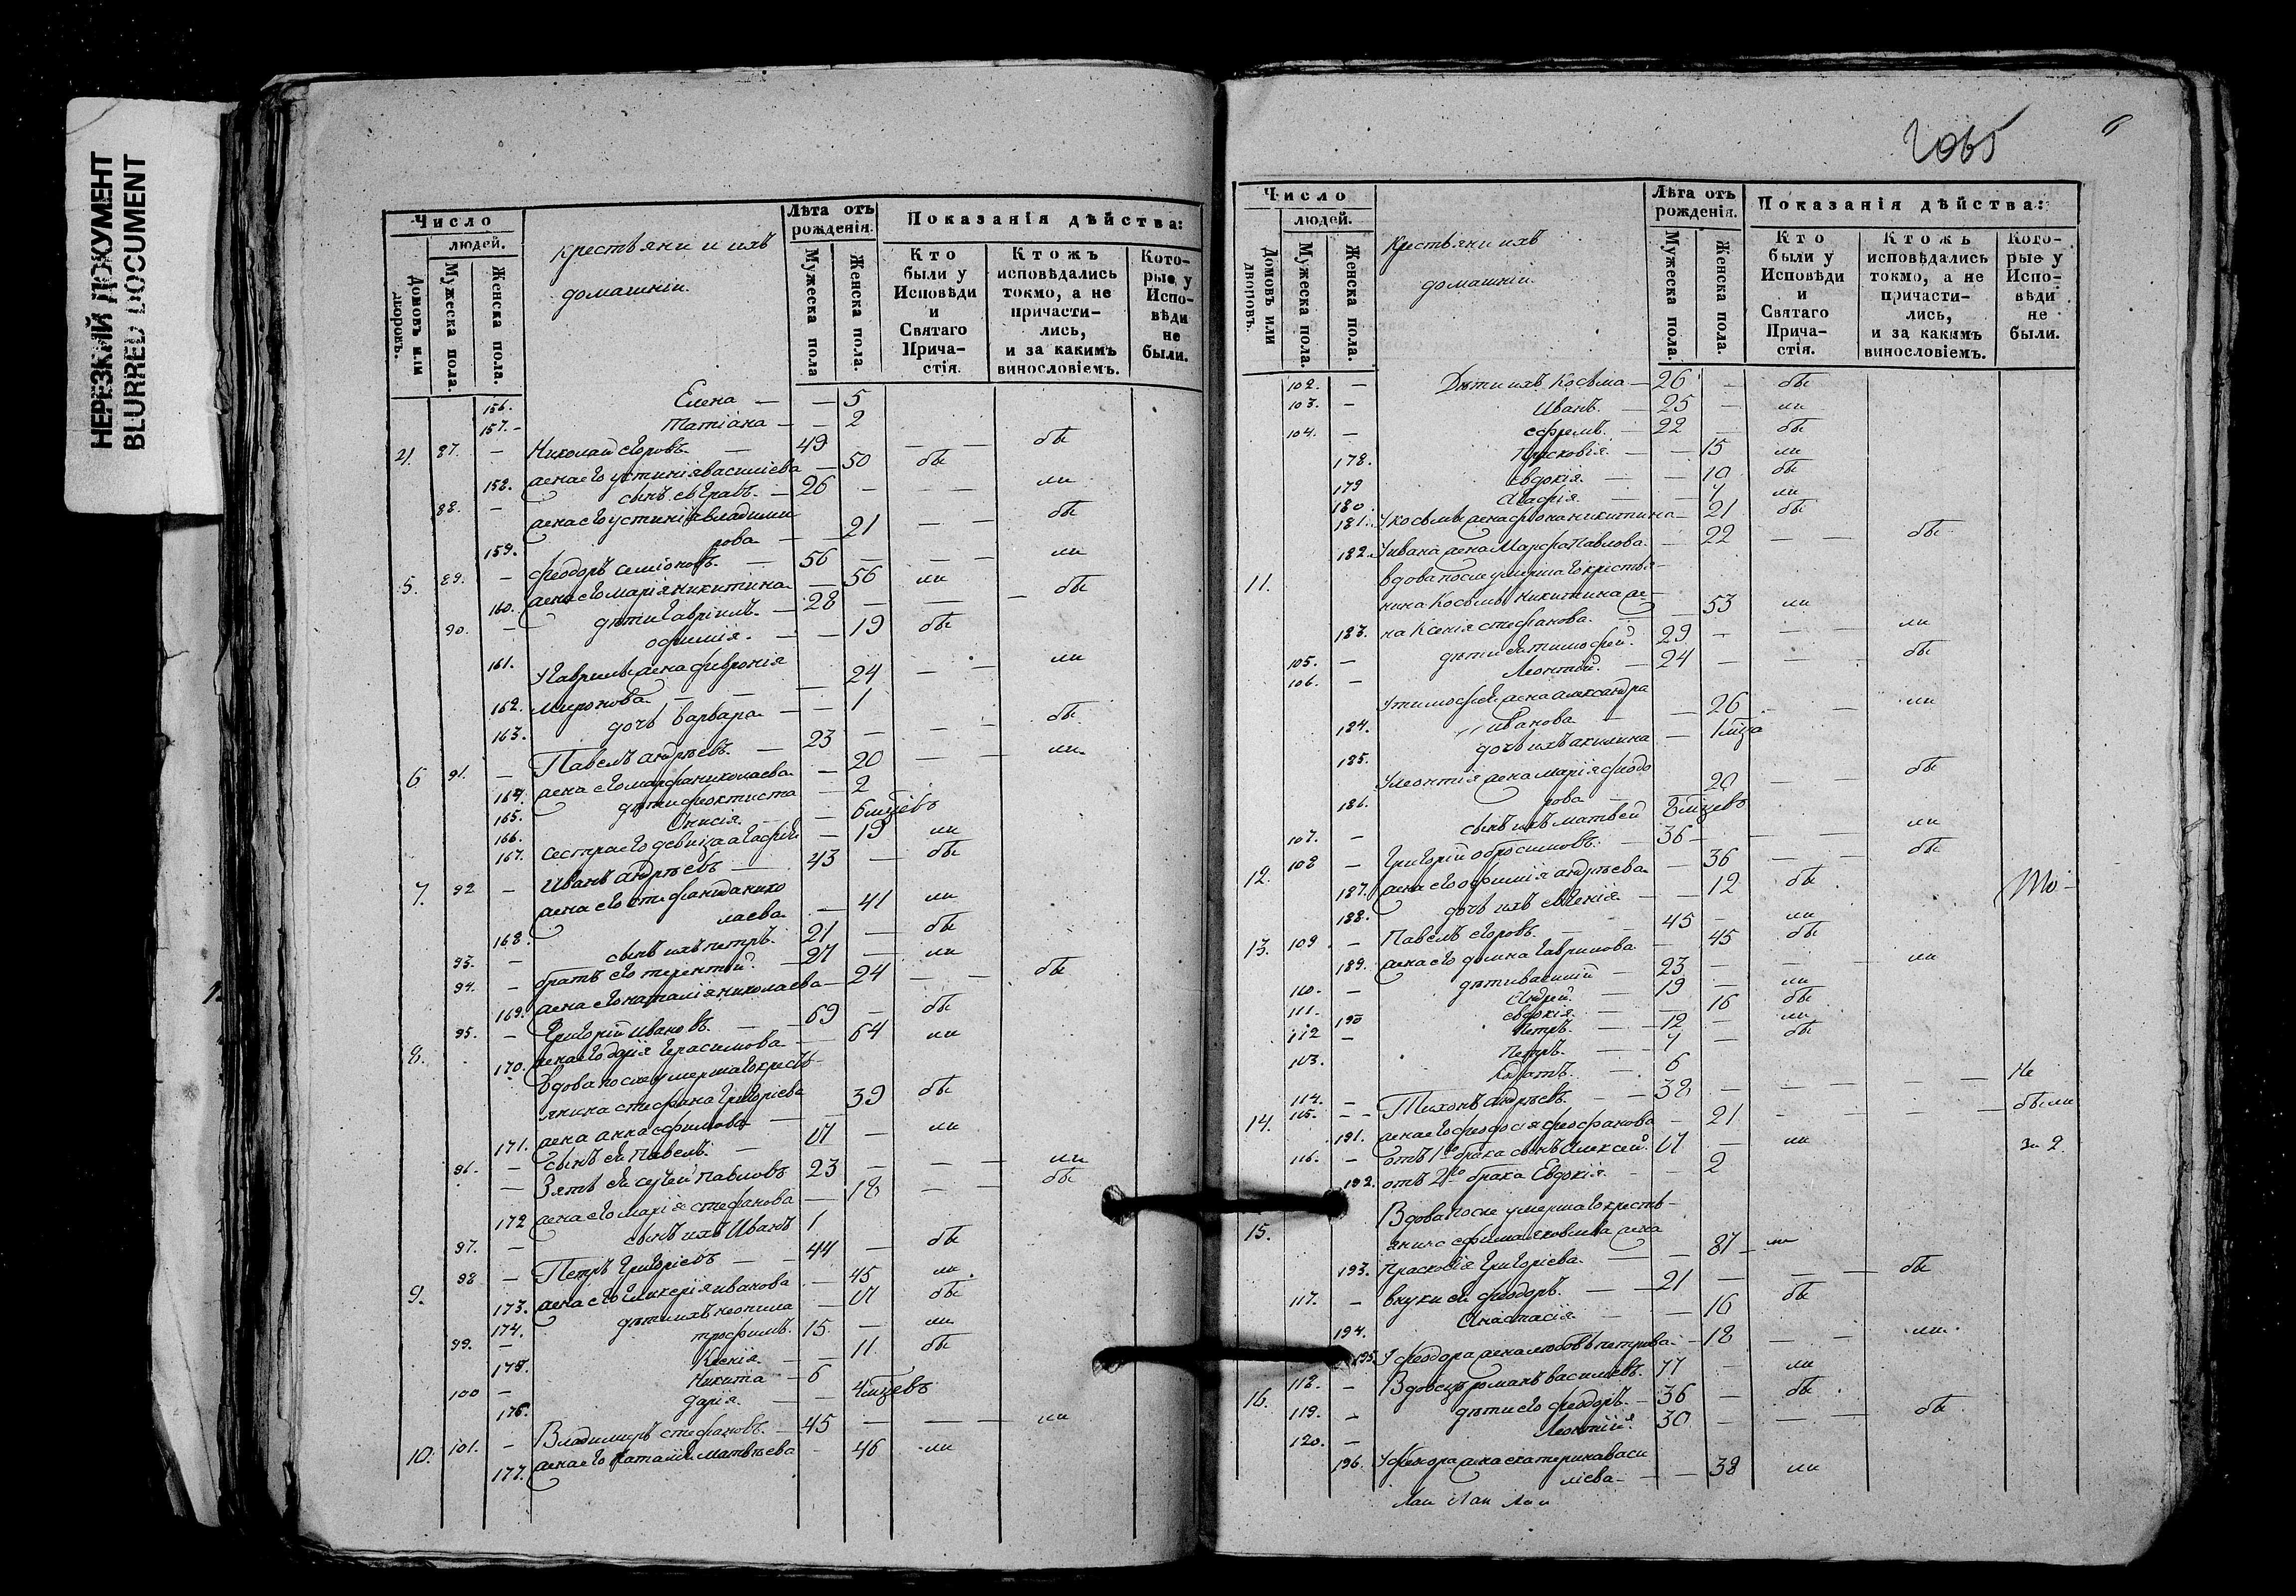 НЕРЕЗКИЙ ДОКУМЕНТ
BLURRED DOCUMENT
Число
людей.
Домовъ или дворовъ.
Мужеска пола.
Женска пола.
крестьяни и ихъ
домашніи.
Лѣта отъ рожденія.
Мужеска пола
Женска пола.
Показанія дѣйства:
Кто были у Исповѣди и Святаго Причастія.
Ктожъ исповѣдались токмо, а не причастились, и за какимъ винословіемъ.
Которые у Исповѣди не были.
156. Елена — — 5
157. - Татіана — — 2
87. — Николай Егоровъ. — 49 — — бы
158. жена его устинія василіева — 50 бы
88. — сынъ евграфъ. — 26 — — — ли
жена его устинія владими
159. рова — — 21 — — бы
5. 89. — Феодоръ семіоновъ. — 56 — — — ли
160. жена его марія никитина — 56 ли
90. — дѣти гавріилъ. — 28 — — — бы
161. офимія. — — 19 бы
У гавріилы жена февронія
162. миронова — — — 24 — — ли
163. дочь варвара — — 1
6 91. — Павелъ андреевъ. — 23 — — — бы
164. жена его марфа николаева — 20 — — ли
165. дѣти феоктиста — 2
166. Анисія. — — 6 мцевъ
167. сестра его девица агафія — 19 ли
7. 92 — Иванъ андреевъ — 43 — бы
жена его стефанида нико
168. лаева — 41 ли
93. — сынъ ихъ петръ. 21 — бы
94. — братъ его терентій. — 27 — ли
169. жена его наталія николаева — 24 — — бы
8. 95. — Григорій Ивановъ. — — 69 — бы
170. жена его дарія герасимова — — 64 ли
вдова после умершаго кресть-
янина стефана григоріева
171. жена анна ефимова — — 39 бы
96. — сынъ ея Павелъ. — — ли
— Зять ея Павловъ 23 — — — ли
172 жена его марія стефанова — 18 — — бы
97. — сынъ ихъ Иванъ 1
9. 98 — Петръ Григоріевъ — — 44 — бы
173. жена его гликерія иванова — 45 ли
174. дѣти ихъ неонила — бы
99. — трофимъ. 15. — ли
175. Ксенія. — — 11 бы
100 — Никита — 6
176. дарія. — — 4 мцевъ
10. 101. — Владимиръ стефановъ. — 45 — — — ли
177. жена его наталія матвѣева — 46 ли
2065
6
Число
людей.
Домовъ или дворовъ.
Мужеска пола.
Женска пола.
Крестьяни ихъ
домашніи.
Лѣта отъ рожденія.
Мужеска пола.
Женска пола.
Показанія дѣйства:
Кто были у Исповѣди и Святаго Причастія.
Ктожъ исповѣдались токмо, а не причастились, и за какимъ винословіемъ.
Которые у Исповѣди не были.
102. — Дѣти ихъ Косьма — 26 — бы
103. — Иванъ. — 25 — ли
104. — ефремъ. — 22 — бы
178. Прасковія. — — 15 ли
179 Евдокія. — — 10 бы
180. Агафія. — — 7 ли
181. У косьмы жена фіона никитина — 21 бы
182. У ивана жена Марфа Павлова — 22 — — бы
11. вдова после умершаго крестья-
нина Косьмы никитина же-
183. на Ксенія стефанова. — — 53 ли
105. — дѣти ея тимофей. 29 — — — ли
106. — Леонтій. — 24 — — — бы
У тимофея жена александра
184. иванова — — 26 — — ли
185. дочь ихъ акилина — 1 мца
У леонтія жена марія феодо
186. рова — 20 — — бы
107. — сынъ ихъ матвей 8 мцевъ
12. 108 — Григорій абросимовъ. — 36 — — — ли
187. жена его офимія андреева — 36 — — бы
188. дочь ихъ евгенія — — 12 бы
То-
13. 109 — Павелъ егоровъ. — — 45 — ли
189. жена его домна гаврилова — 45 бы
110. — дѣти василій — 23 — — — ли
111. — Андрей. — 19 — ли
190 евдокія. — — 16 бы
112 — Петръ. — 12 — ли
113. Петръ. — 7 — бы
114. — — 6
14. 115. — Тихонъ андреевъ. — — 38 — — — — — Не
191. жена его феодосія феофанова — 21 — — — — были
116. — отъ 1го брака сынъ Алексей. — ли За 2.
192. отъ 2го брака Евдокія. — — 2
15. Вдова после умершаго кресть-
янина ефима яковлева жена
193. Прасковія Григоріева. — — 87 — ли
117. — внуки ея феодоръ. — — 21 — — — бы
194. Анастасія — — 16 бы
195. У феодора жена любовь петрова — 18 — — ли
16. 118. — Вдовецъ романъ василіевъ. 77 — ли
119. — дѣти его феодоръ. — 36 — бы
120. — Леонтій. 30 — — — бы
196. У феодора жена екатерина васи
ліева — — — 38 ли